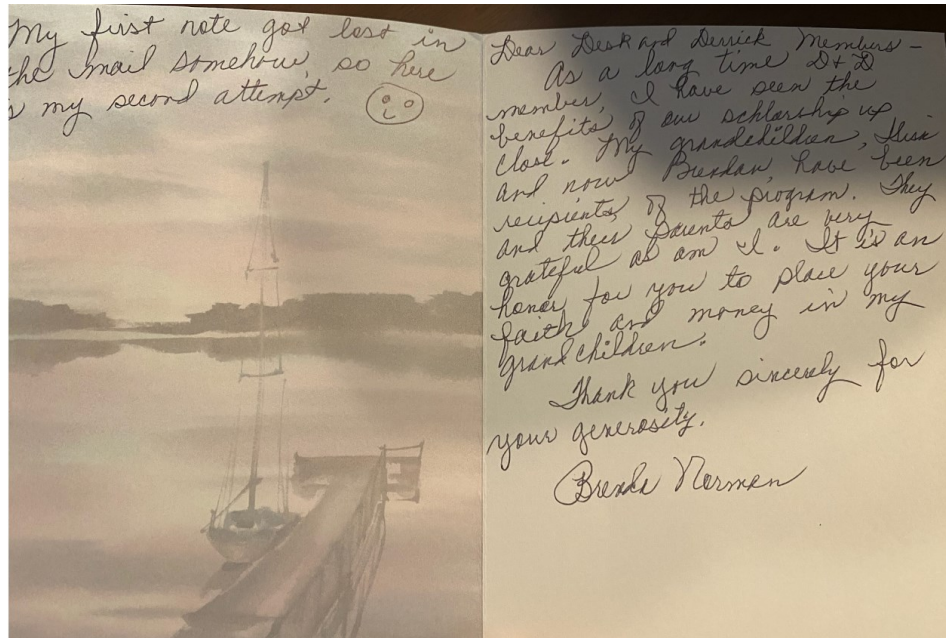 My first note got lost in
the mail somehow, so here
is my second attempt.
Dear Desk and Derrick Members -
As a long time D&D
member, I have seen the
benefits of our schlarship up
close. My grandchildren,
and now Brendan, have been
recipients of the program. They
and their parents are very
grateful as am I. It is an
honor for you to place your
faith and money in my
grandchildren.
Thank you sincerely for
your generosity.
Brenda Norman